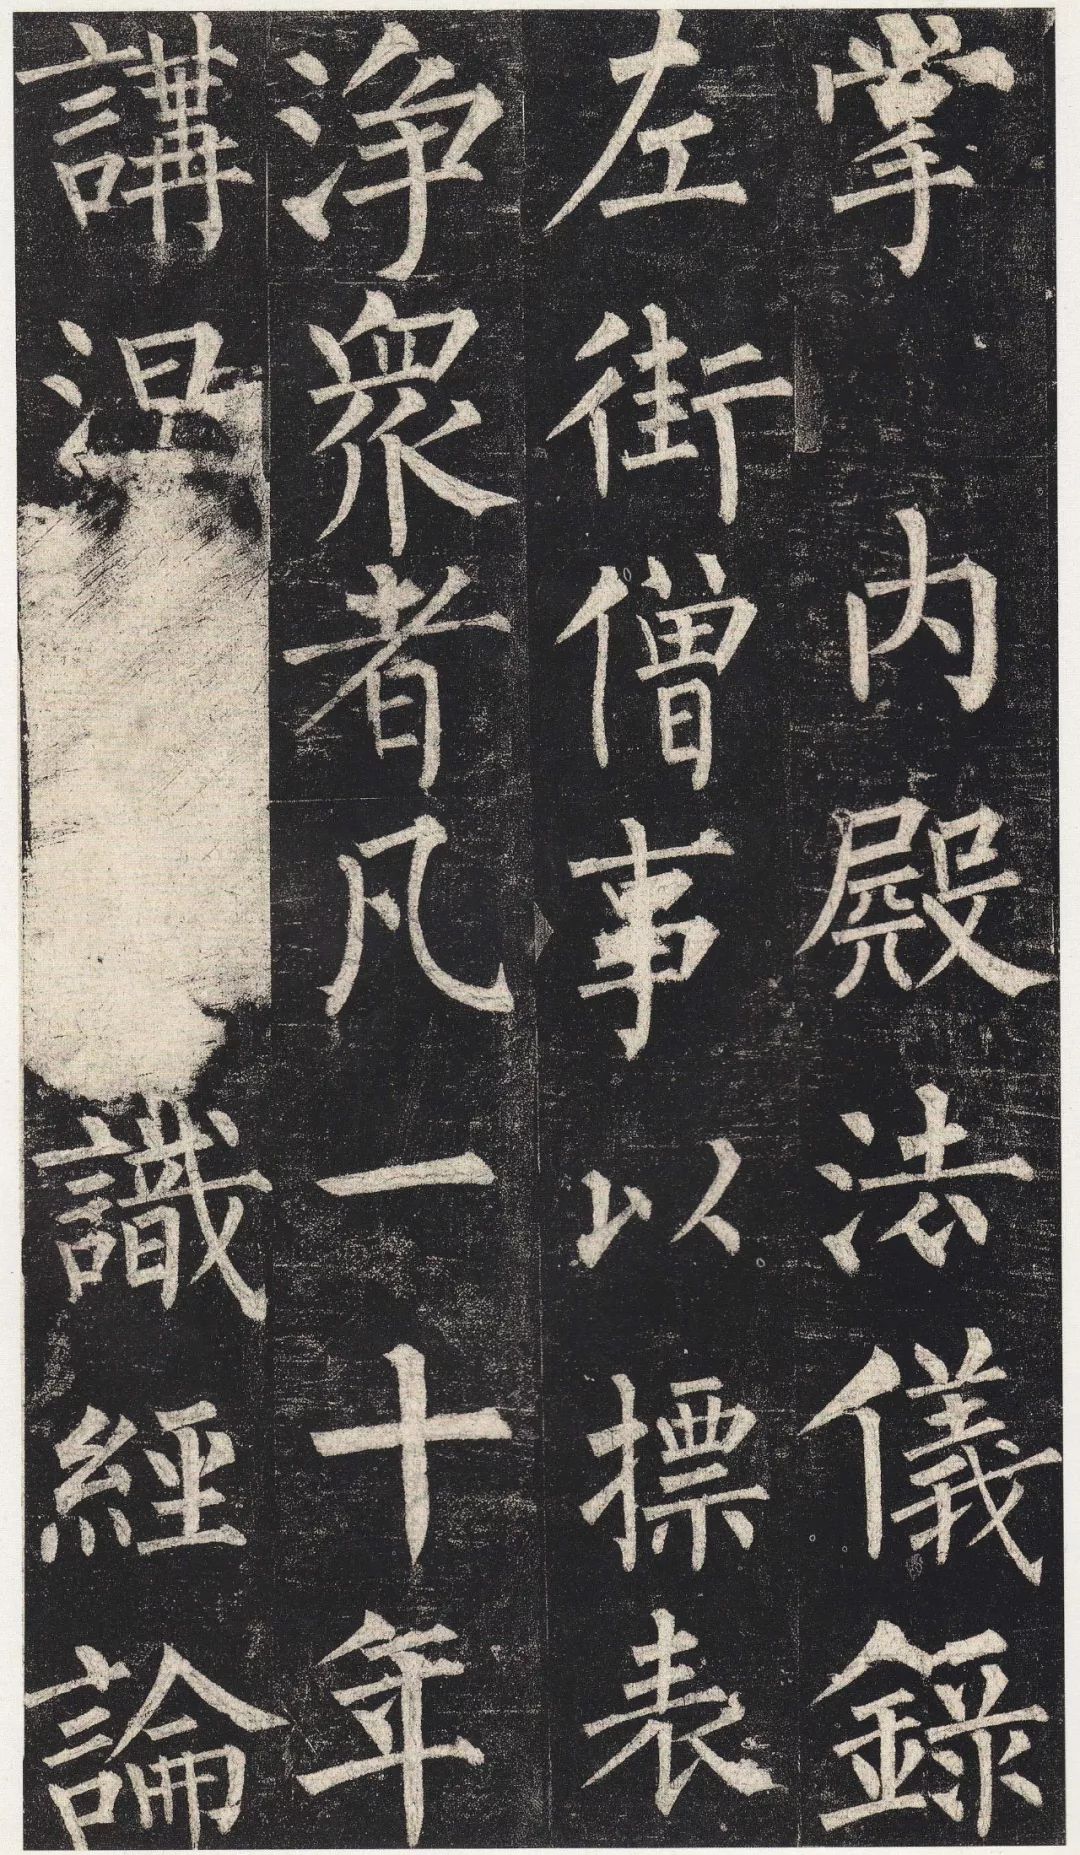 掌 內殿法儀錄
左街僧事以摽表
淨衆者凡一十年
講涅 識經論